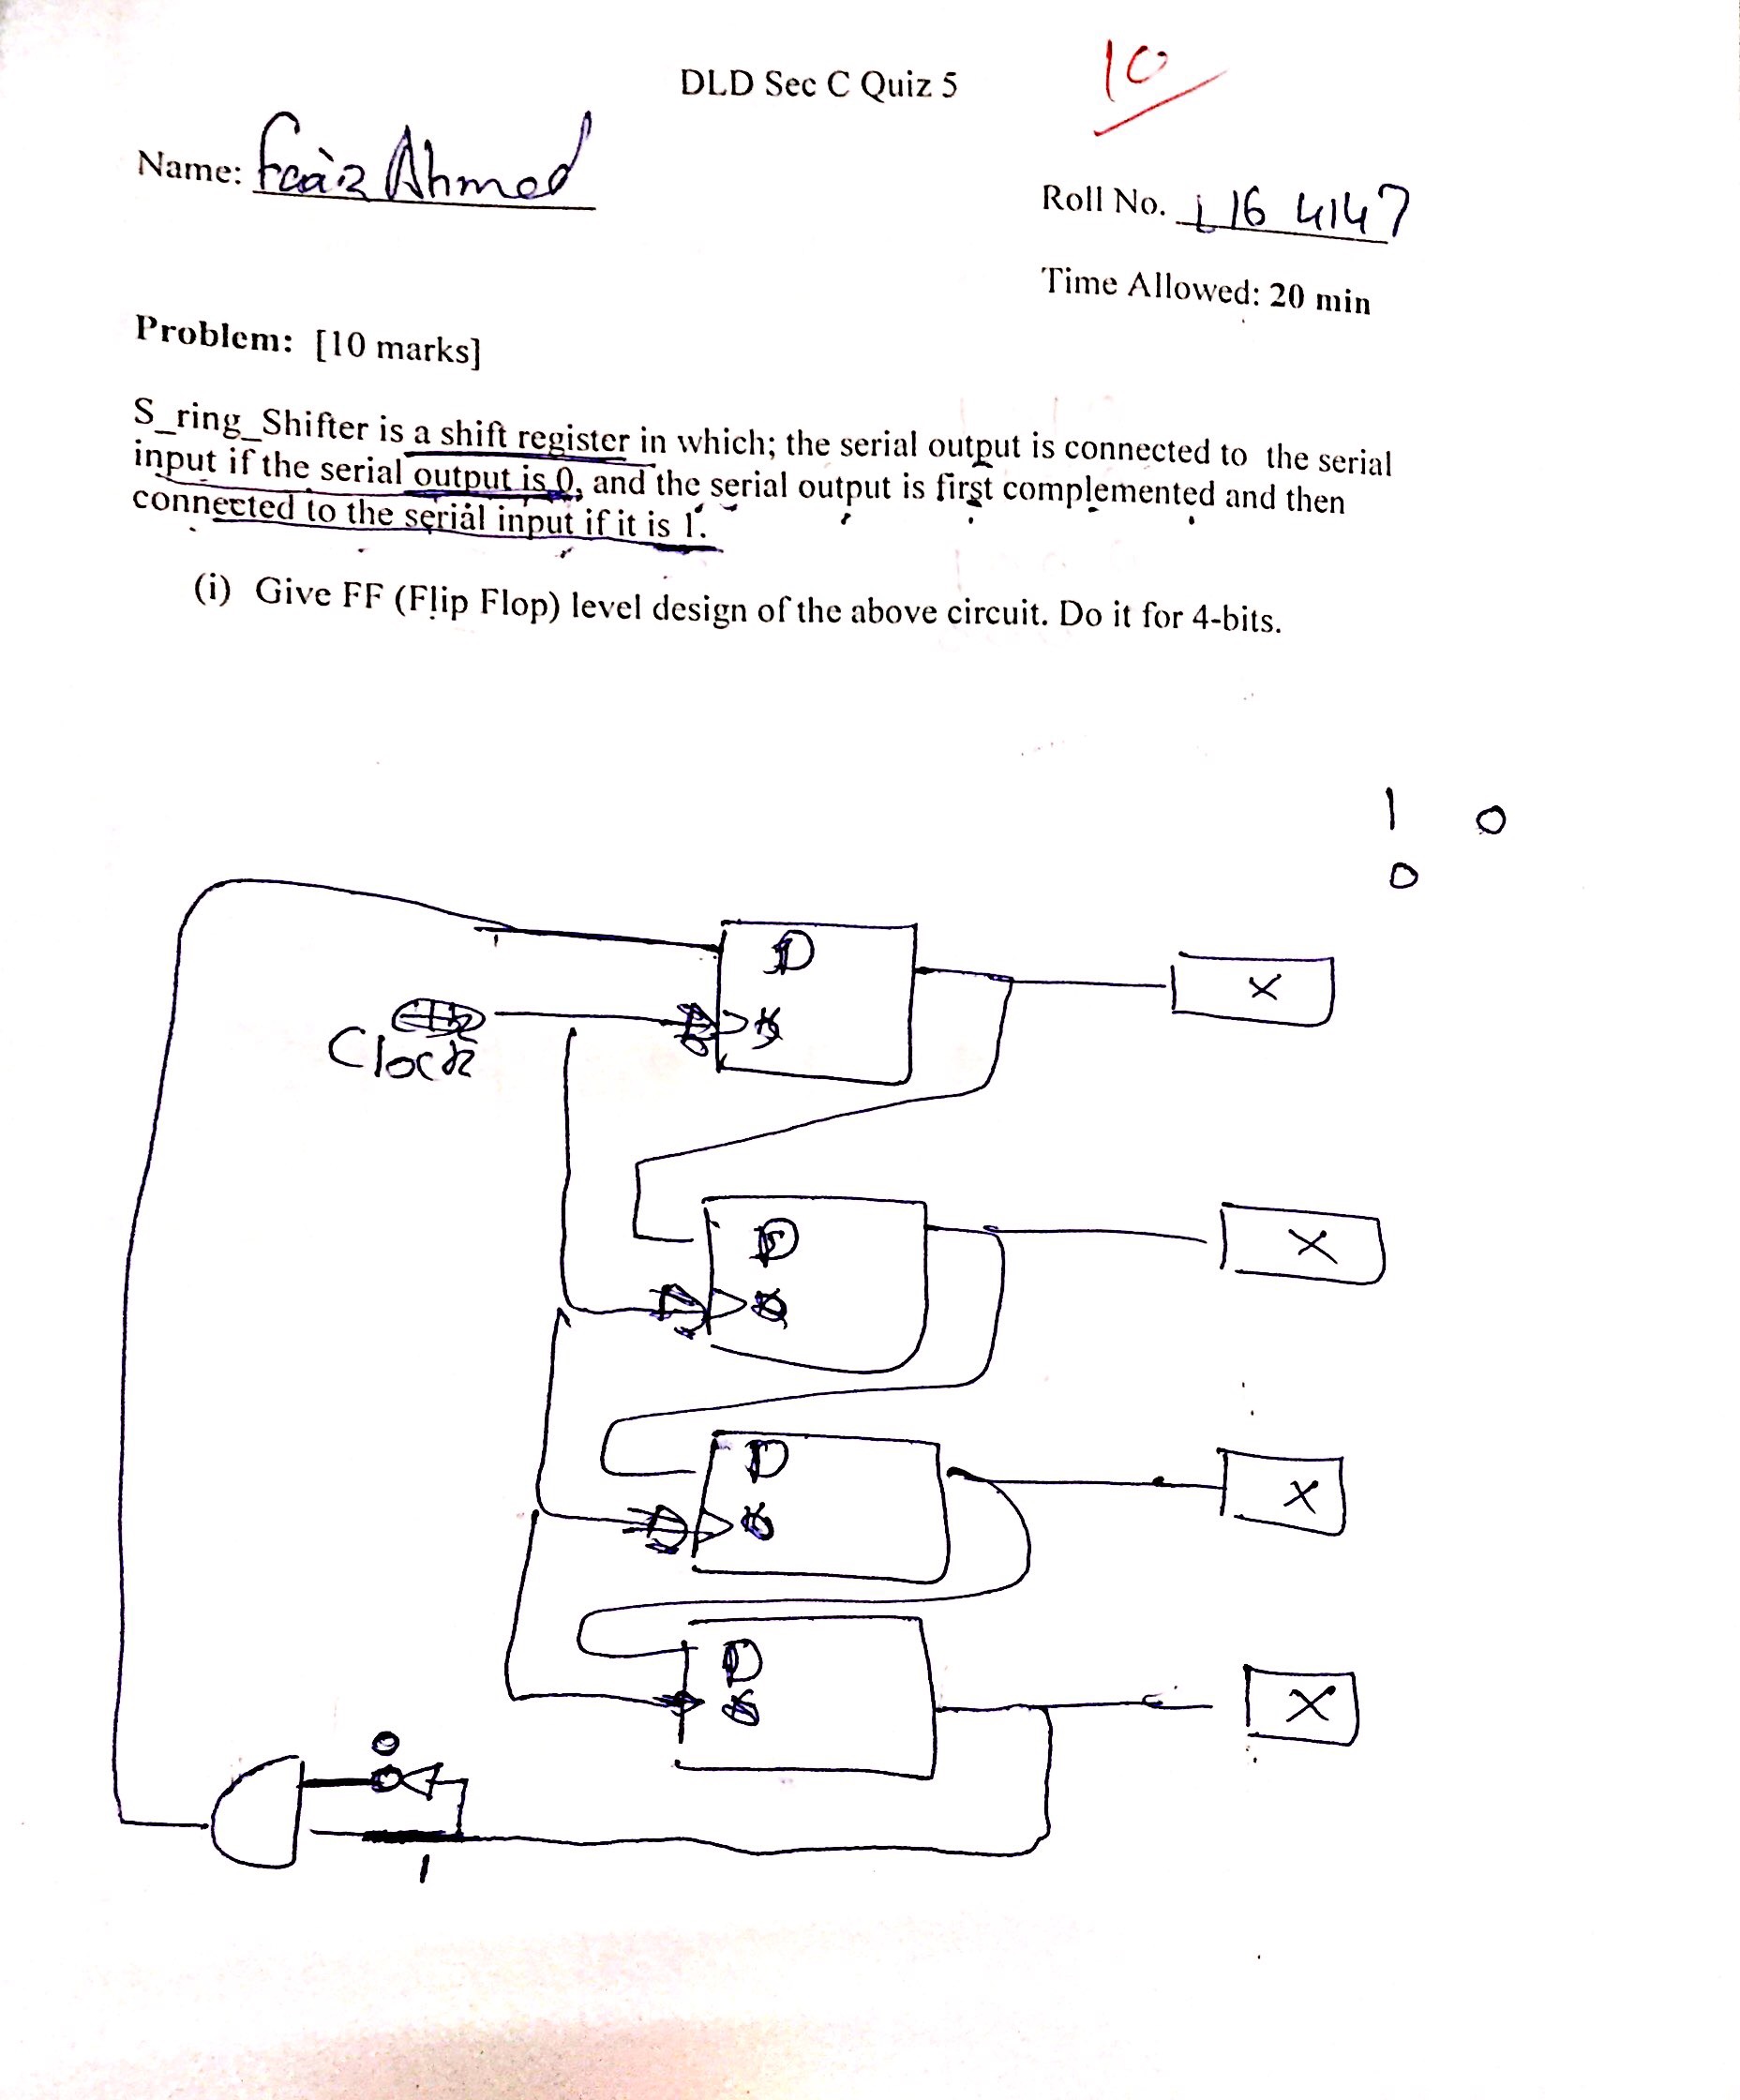 DLD Sec C Quiz 5
10
Name: Faaiz Ahmed
Roll No. L16 4147
Time Allowed: 20 min
Problem: [10 marks]
S_ring_Shifter is a shift register in which; the serial output is connected to the serial
input if the serial output is 0, and the serial output is first complemented and then
connected to the serial input if it is 1.
(i) Give FF (Flip Flop) level design of the above circuit. Do it for 4-bits.
1 0
0
D
X
Clock
D
X
D
X
D
X
0
1